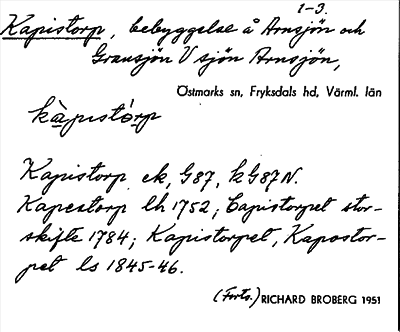 1-3.
Kapistorp, bebyggelse å Arnsjön och
Gransjön V sjön Arnsjön,
Östmarks sn, Fryksdals hd, Värml. län
kàpistórp
Kapistorp ek, G87, kG87N.
Kapestorp lh 1752; Capistorpet stor-
skifte 1784; Kapistorpet, Kapostor-
pet ls 1845-46.
(Forts.) RICHARD BROBERG 1951